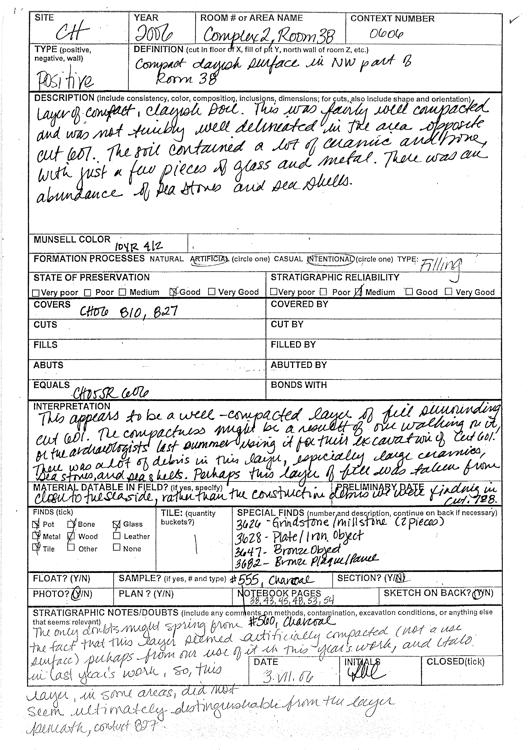 SITE YEAR ROOM # or AREA NAME CONTEXT NUMBER
CH 2006 Complex 2, Room 3B 0606
TYPE (positive, negative, wall) DEFINITION (cut in floor of X, fill of pit Y, north wall of room Z, etc.)
Positive Compact clayish surface in NW part of
Room 3B
DESCRIPTION (include consistency, color, composition, inclusions, dimensions; for cuts, also include shape and orientation)
Layer of compact, clayish soil. This was fairly well compacted
and was not terribly well delineated in the area opposite
cut 601. The soil contained a lot of ceramic and bone,
with just a few pieces of glass and metal. There was an
abundance of sea stones and sea shells.
MUNSELL COLOR 10YR 4/2
FORMATION PROCESSES NATURAL ARTIFICIAL (circle one) CASUAL INTENTIONAL (circle one) TYPE: Filling
STATE OF PRESERVATION STRATIGRAPHIC RELIABILITY
Very poor Poor Medium Good Very Good Very poor Poor Medium Good Very Good
COVERS CH06 810, 827 COVERED BY
CUTS CUT BY
FILLS FILLED BY
ABUTS ABUTTED BY
EQUALS CH05SR 606 BONDS WITH
INTERPRETATION
This appears to be a well-compacted layer of fill surrounding
cut 601. The compactness might be a result of our walking on it,
or the archaeologists last summer using it for their excavation of cut 601.
There was a lot of debris in this layer, especially large ceramics,
sea stones, and sea shells. Perhaps this layer of fill was taken from
MATERIAL DATABLE IN FIELD? (if yes, specify) PRELIMINARY DATE
close to the seaside, rather than the construction debris we were finding in
cut 788.
FINDS (tick) TILE: (quantity buckets?) SPECIAL FINDS (number and description, continue on back if necessary)
Pot Bone Glass 3626 - Grindstone/millstone (2 pieces)
Metal Wood Leather 3628 - Plate/Iron object
Tile Other None 3647 - Bronze Object
3682 - Bronze Plaque/Panel
FLOAT? (Y/N) SAMPLE? (if yes, # and type) #555, Charcoal SECTION? (Y/N)
PHOTO? (Y/N) PLAN? (Y/N) NOTEBOOK PAGES SKETCH ON BACK? (Y/N)
38, 43, 45, 48, 53, 54
STRATIGRAPHIC NOTES/DOUBTS (include any comments on methods, contamination, excavation conditions, or anything else
that seems relevant) #560, Charcoal
The only doubts might spring from
the fact that this layer seemed artificially compacted (not a use
surface) perhaps from our use of it in this year's work, and
in last year's work, so, this
DATE INITIALS CLOSED (tick)
3.VII.06
layer, in some areas, did not
seem ultimately distinguishable from the layer
beneath, context 827.